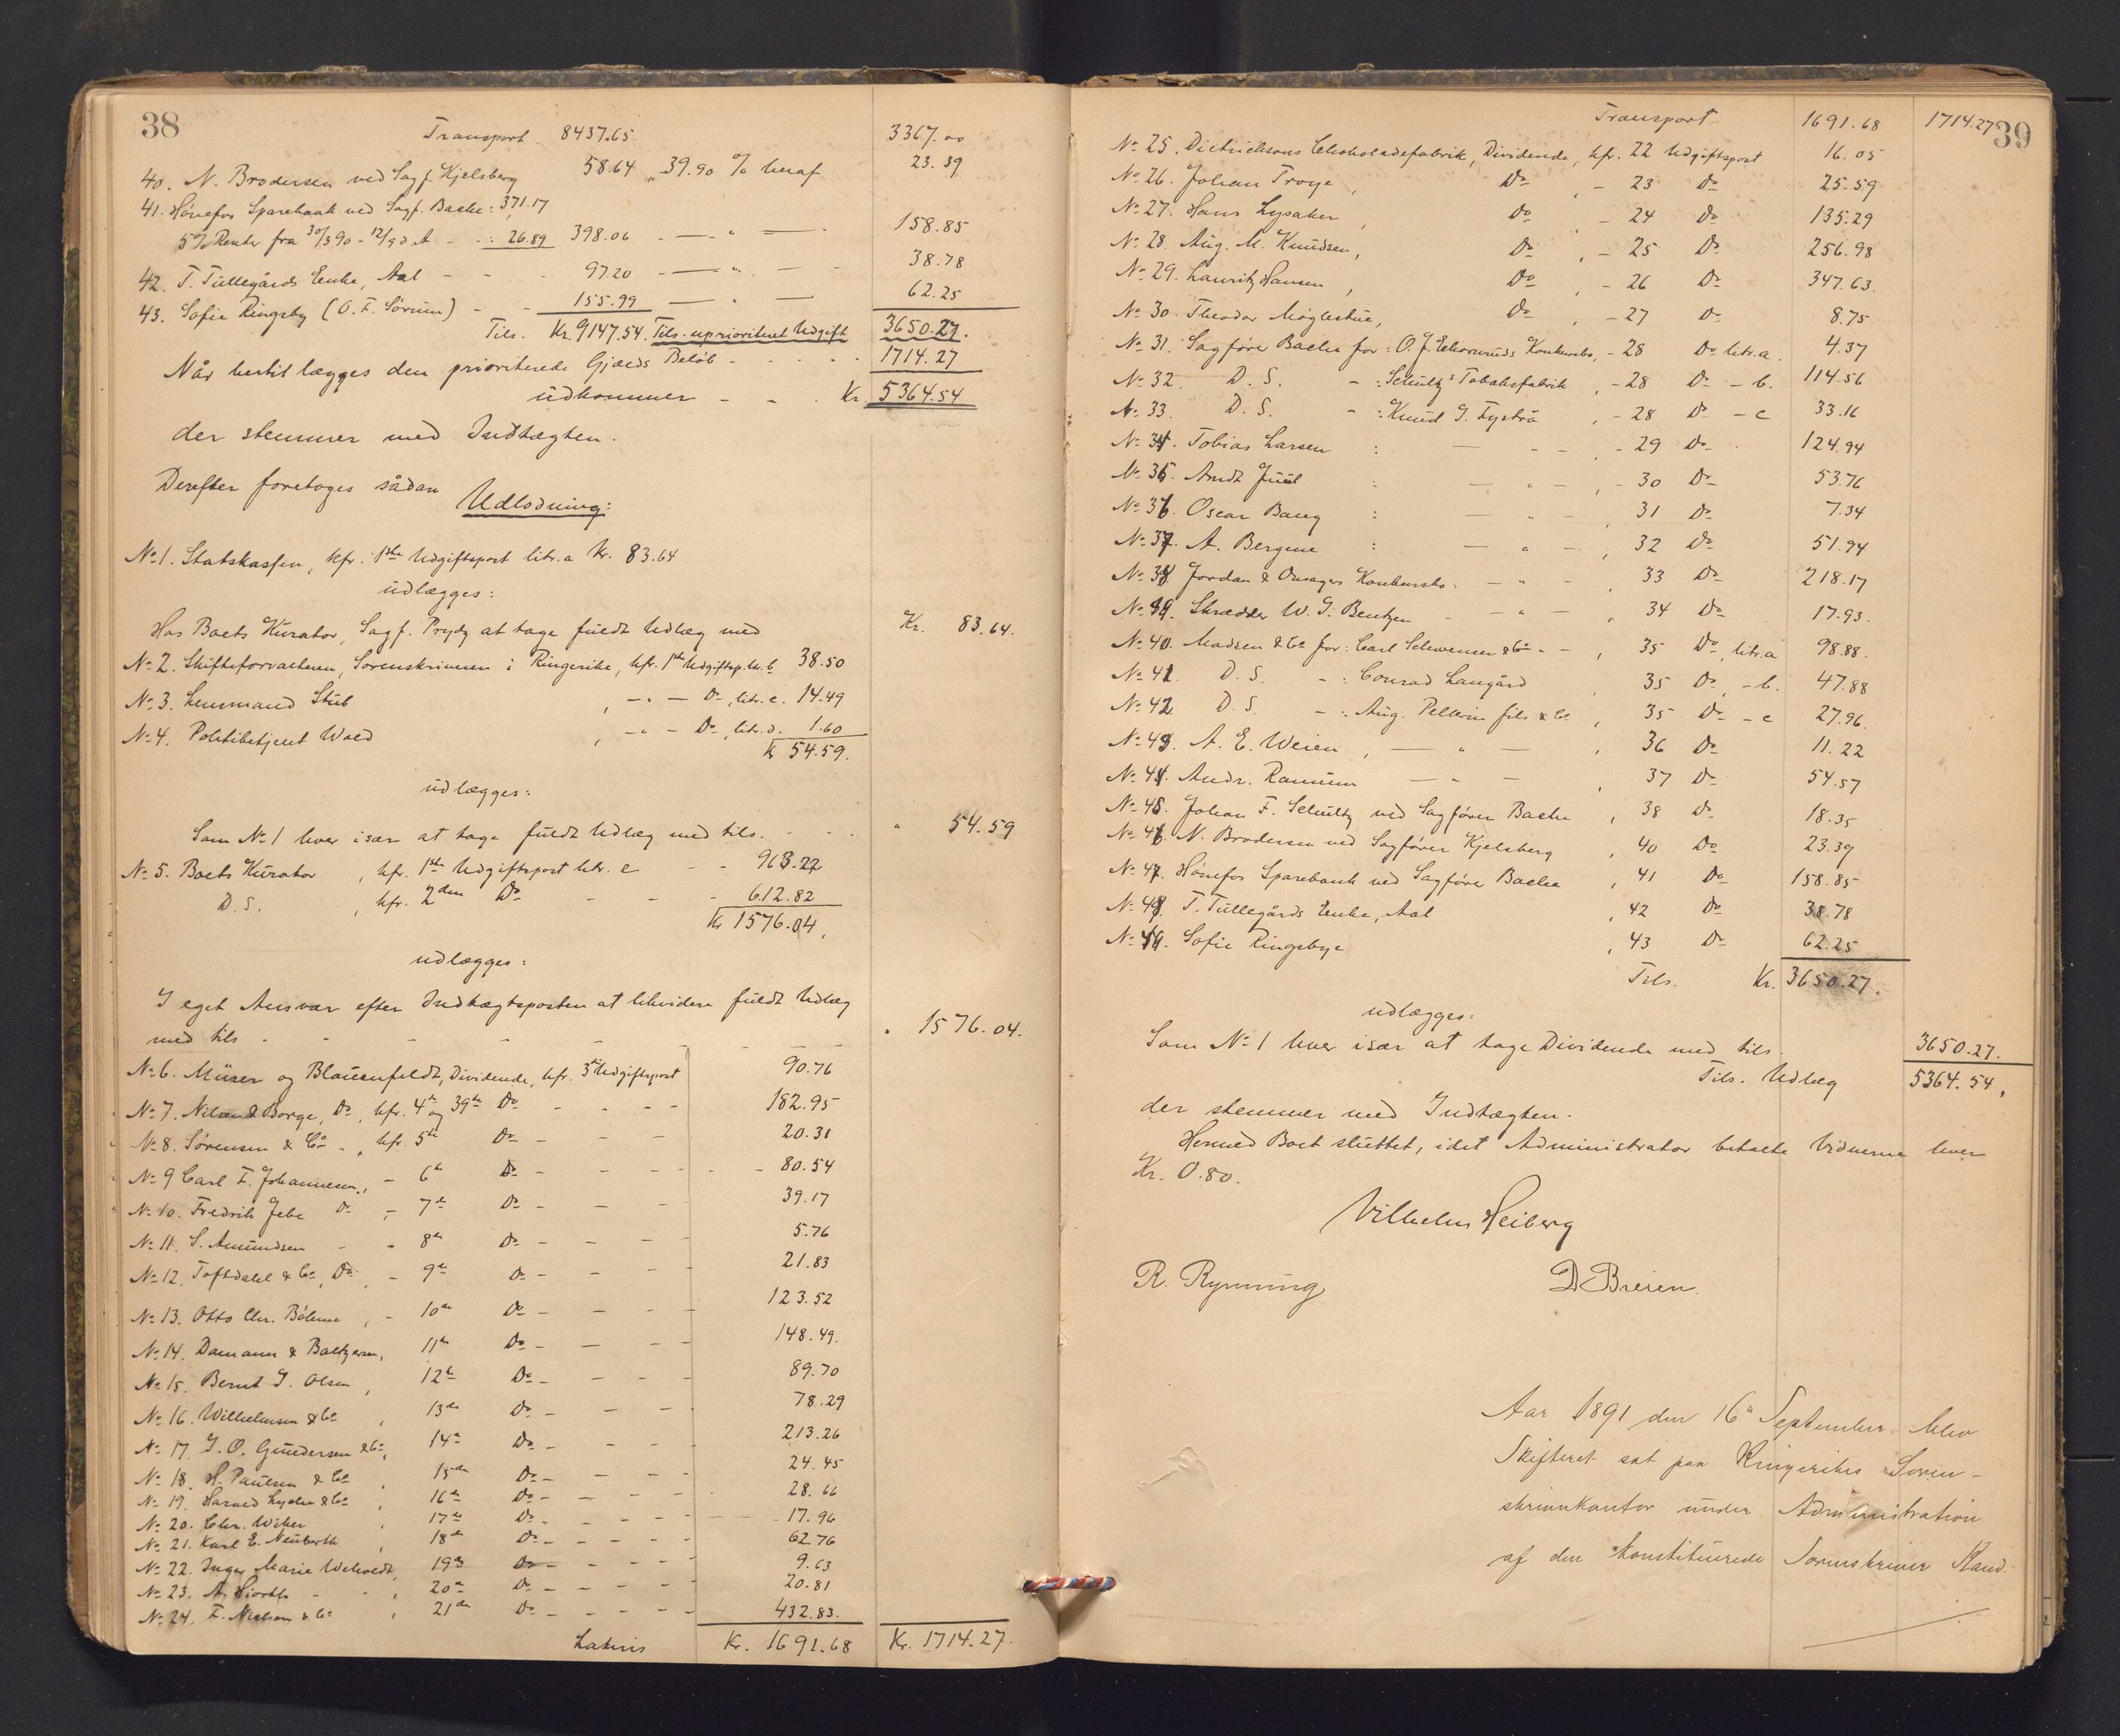 38
Transport. 8437.65. 3367.00
40. N. Brodersen ved Sagf. Kjelsberg 58.64 „ 39.90 % heraf 23.39
41. Hönefos Sparebank ved Sagf. Bache: 371.17
5% Renter fra 30/3 90 - 12/9 d. A - : 26.89 398.06 - — " — 158.85
42. T. Tullegårds Enke, Aal - - - 97.20 - — " — - 38.78
43. Sofie Ringsby (O. F. Sörum) - - 155.99 — " — 62.25
Tils. Kr. 9147.54. Tils. uprioriteret Udgift 3650.27.
Når hertil lægges den prioriterede Gjælds Belöb - - - - - 1714.27
udkommer - - . Kr. 5364.54
der stemmer med Indtægten.
Derefter foretoges sådan
Udlodning:
No 1. Statskassen, kfr. 1ste Udgiftspost litr. a Kr. 83.64
udlægges:
Hos Boets Kurator, Sagf. Prydz at tage fuldt Udlæg med Kr. 83.64.
No 2. Skifteforvalteren, Sorenskriveren i Ringerike, kfr. 1ste Udgiftsp. lit. b 38.50
No 3. Lensmand Stub , - " - Do, litr. c. 14.49
No 4. Politibetjent Wold , - " - Do, litr. d. 1.60
Kr 54.59.
udlægges:
Som No 1 hver især at tage fuldt Udlæg med tils. - - - " 54.59
No 5. Boets Kurator , kfr. 1ste Udgiftspost litr. e - - 963.22
D. S. , kfr. 2den Do - - - 612.82
Kr 1576.04.
udlægges:
I eget Ansvar efter Indtægtsposten at likvidere fuldt Udlæg
med tils - - - - - - - " 1576.04.
No 6. Müser og Blauenfeldt, Dividende, kfr. 3die Udgiftspost 90.76
No 7. Nilsen & Borge, Do, kfr. 4de og 39te Do - - - - 182.95
No 8. Sörensen & Co - , kfr. 5te Do - - - 20.31
No 9 Carl F. Johannesen, - 6te Do - - - - - 80.54
No 10. Fredrik Jebe Do , - 7de Do - - - 39.17
No 11. S. Amundsen - - 8de Do - - - - 5.76
No 12. Toftdahl & Co, Do , - 9de Do - - - - 21.83
No 13. Otto Chr. Böhme , - 10de Do - - - - 123.52
No 14. Damann & Baltzersen, 11te Do - - - - 148.49.
No 15. Bernt J. Olsen , 12te Do - - - - 89.70
No 16. Wilhelmsen & Co , 13de Do - - - - 78.29
No 17. J. O. Gundersen & Co, 14de Do - - - - 213.26
No 18. H. Paulsen & Co , 15de Do - - - - 24.45
No 19. Harald Lyche & Co , 16de Do - - - - 28.66
No 20. Chr. Wiker , 17de Do - - - - 17.96
No 21. Karl E. Neuberth , 18de Do - - - - 62.76
No 22. Inger Marie Wehvedt, 19de Do - - - - 9.63
No 23. A. Hiorth - - , 20de Do - - - - 20.81
No 24. F. Nielsen & Co , 21de Do - - - - 432.83.
Lateris Kr. 1691.68 Kr. 1714.27.
39
Transport 1691.68 1714.27
No 25. Dietrichsons Chokoladefabrik, Dividende, kfr. 22 Udgiftspost 16.05
No 26. Johan Troye , Do , - 23 Do 25.59
No 27. Hans Lysaker , Do , - 24 Do 135.29
No 28. Aug. M. Knudsen, Do , - 25 Do 256.98
No 29. Lauritz Hansen , Do , - 26 Do 347.63.
No 30. Theodor Möglestue, Do , - 27 Do 8.75
No 31. Sagförer Bache for: O. J. Ekornruds Konkursbo, - 28 Do litr. a. 4.37
No 32. D. S. - : Schultz's Tobaksfabrik , - 28 Do - b. 114.56
No 33. D. S. - : Knud G. Tysträ , - 28 Do - c 33.16
No 34. Tobias Larsen : — " - , - 29 Do - 124.94
No 35. Arndt Juul : — " - , - 30 Do 53.76
No 36. Oscar Baug : — " - , 31 Do 7.34
No 37. A. Bergene : — " - , 32 Do 51.94
No 38. Jordan & Onsagers Konkursbo. - " - , 33 Do 218.17
No 39. Skrædder W. G. Bentzen - " - , 34 Do 17.93.
No 40. Madsen & Co for: Carl Schwensen & Co " - , 35 Do, litr. a 98.88.
No 41. D. S. - : Conrad Langård , 35 Do, - b. 47.88
No 42. D. S. - : Aug. Pellerin fils & Co , 35 Do - c 27.96.
No 43. A. E. Weien , — " — , 36 Do 11.22
No 44. Andr. Ramum — " — , 37 Do 54.57
No 45. Johan F. Schultz ved Sagförer Bache , 38 Do 18.35
No 46. N. Brodersen ved Sagförer Kjelsberg , 40 Do 23.39
No 47. Hönefos Sparebank ved Sagförer Bache , 41 Do 158.85
No 48. T. Tullegårds Enke, Aal , 42 Do 38.78
No 49. Sofie Ringsbye , 43 Do 62.25
Tils. Kr. 3650.27.
udlægges:
Som No 1 hver især at tage Dividende med tils. 3650.27.
Tils. Udlæg 5364.54.
der stemmer med Indtægten.
Hermed Boet sluttet, idet Administrator betalte Vidnerne hver
Kr. 0.80.
Vilhelm Heiberg
R. Rynning D Breien.
Aar 1891 den 16de September blev
Skifteret sat paa Ringerikes Soren-
skriverkontor under Administration
af den konstituerede Sorenskriver Kand.